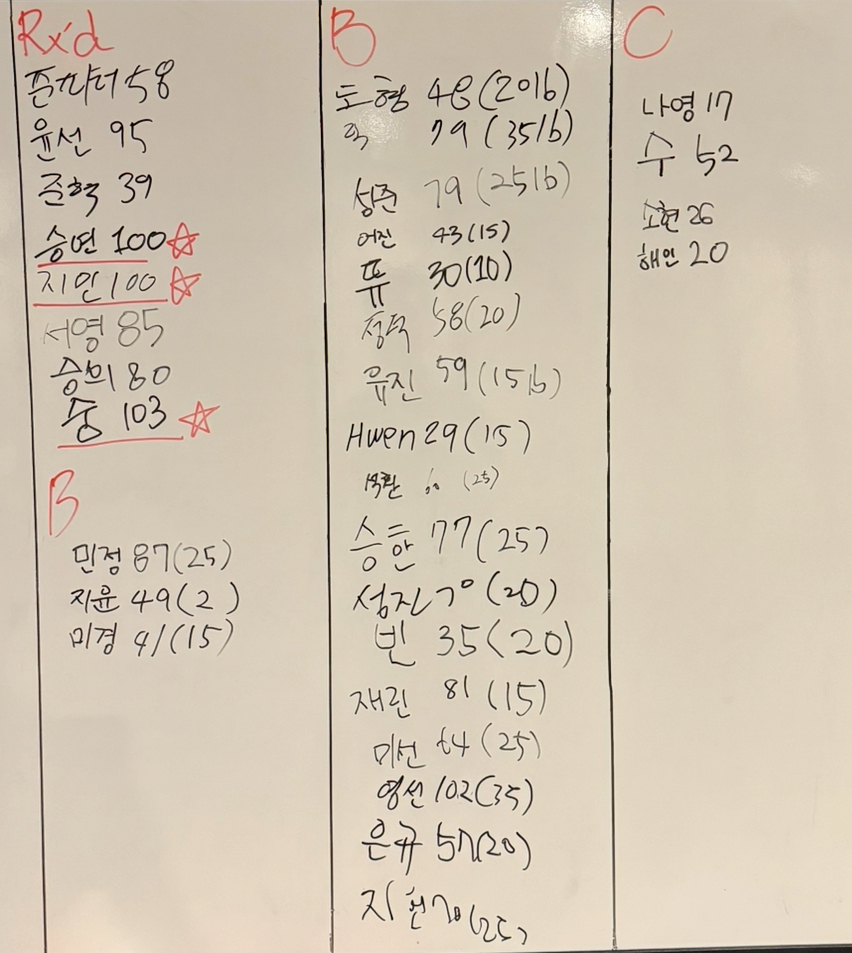 Rx'd
준파더 58
윤선 95
준혁 39
승연 100
지인 100
서영 85
승희 80
중 103
B
민정 87(25)
지윤 49(2 )
미경 41(15)
B
도형 48(20lb)
혁 79 (35lb)
상준 79(25lb)
어진 43(15)
쀼 30(10)
정덕 58(20)
유진 59(15lb)
Hwen 29(15)
60 (25)
승한 77(25)
성진 70(20)
빈 35(20)
재린 81(15)
미선 64(25)
영선 102(35)
은규 57(20)
지현 70(25)
C
나영 17
수 52
소현 26
해인 20